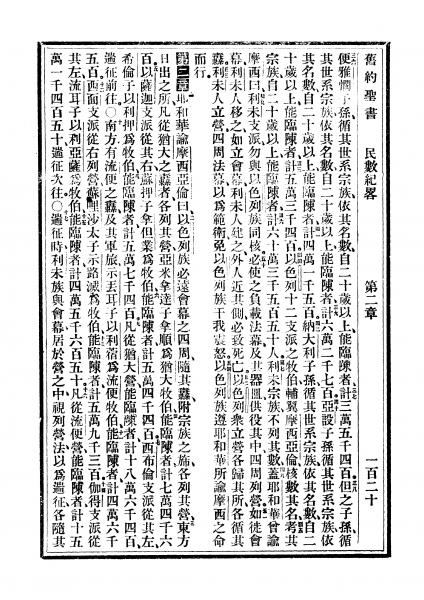 舊約聖書 民數紀畧 第二章 一百二十
便雅憫子孫循其世系宗族依其名數自二十歲以上能臨陳者計三萬五千四百但之子孫循
其世系宗族依其名數自二十歲以上能臨陳者計六萬二千七百亞設子孫循其世系宗族依
其名數自二十歲以上能臨陳者計四萬一千五百納大利子孫循其世系宗族依其名數自二
十歲以上能臨陳者計五萬三千四百以色列十二支派之牧伯輔翼摩西亞倫核數其名考其
宗族自二十歲以上能臨陳者計六十萬三千五百五十人利未宗族不列其數蓋耶和華曾諭
摩西曰利未支派勿與以色列族同核必使之負載法幕及其器皿供役其中四周列營如徙會
幕利未人移之如立會幕利未人建之外人近其側必致死亡以色列衆立營各歸其所各循其
纛利未人立營四周法幕以為範衛免以色列族干我震怒以色列族遵耶和華所諭摩西之命
而行
第二章耶和華諭摩西亞倫曰以色列族必遠會幕之四周隨其纛附宗族之旆各列其營東方
日出之所凡從猶大之纛者各列其營亞米拿達子拿順為猶大牧伯能臨陳者計七萬四千六
百以薩迦支派從其右蘇押子拿但業為牧伯能臨陳者計五萬四千四百西布倫支派從其左
希倫子以利押為牧伯能臨陳者計五萬七千四百凡從猶大營能臨陳者計十八萬六千四百
遄征前往○南方有流便之纛及其軍旅示丟耳子以利蓿為流便牧伯能臨陳者計四萬六千
五百西面支派從右列營蘇哩沙太子示路滅為牧伯能臨陳者計五萬九千三百伽得支派從
其左流耳子以利亞薩為牧伯能臨陳者計四萬五千六百五十凡從流便營能臨陳者計十五
萬一千四百五十遄征次往○遄征時利未族與會幕居於營之中視列營法以為遄征各隨其